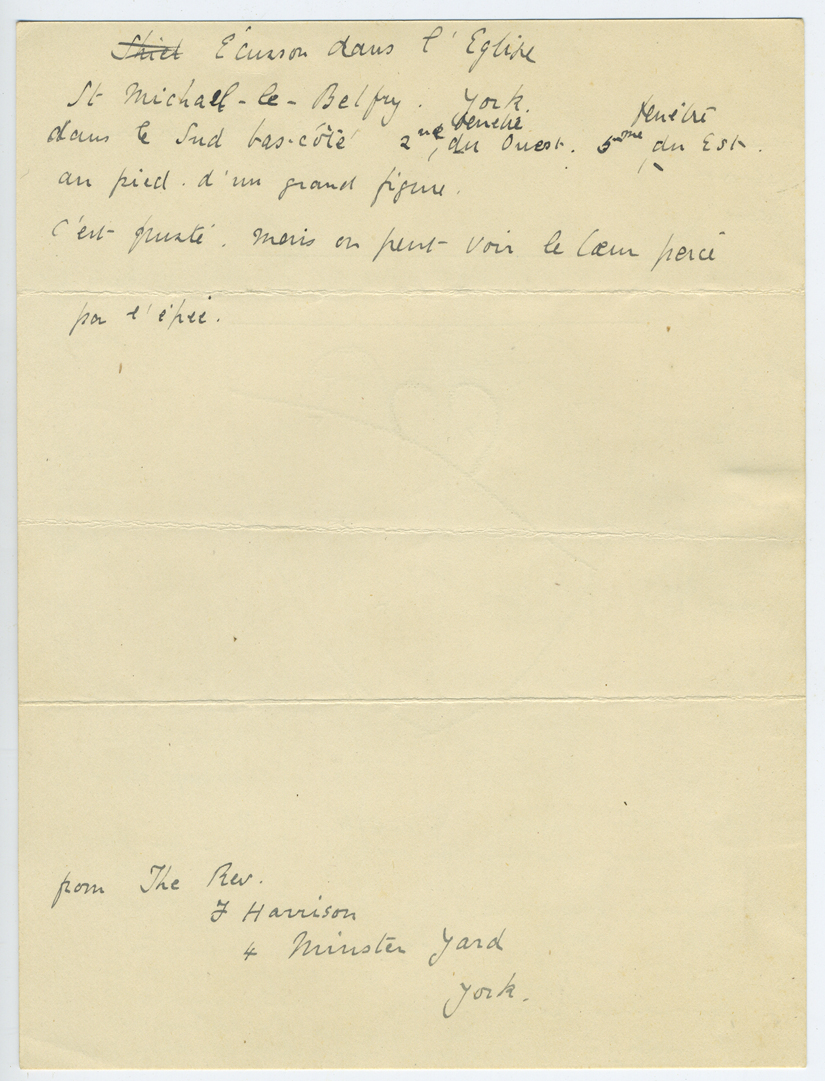 Shiel Ecusson dans l'Eglise
St Michael-le-Belfry. York.
fenetre fenêtre
dans le Sud bas-côté 2nd du Ouest. 5me du Est.
au pied. d'un grand figure.
C'est gusté. mais on peut voir le Cœur percé
par l'épée.
from The Rev.
F Harrison
4 Minster Yard
York.